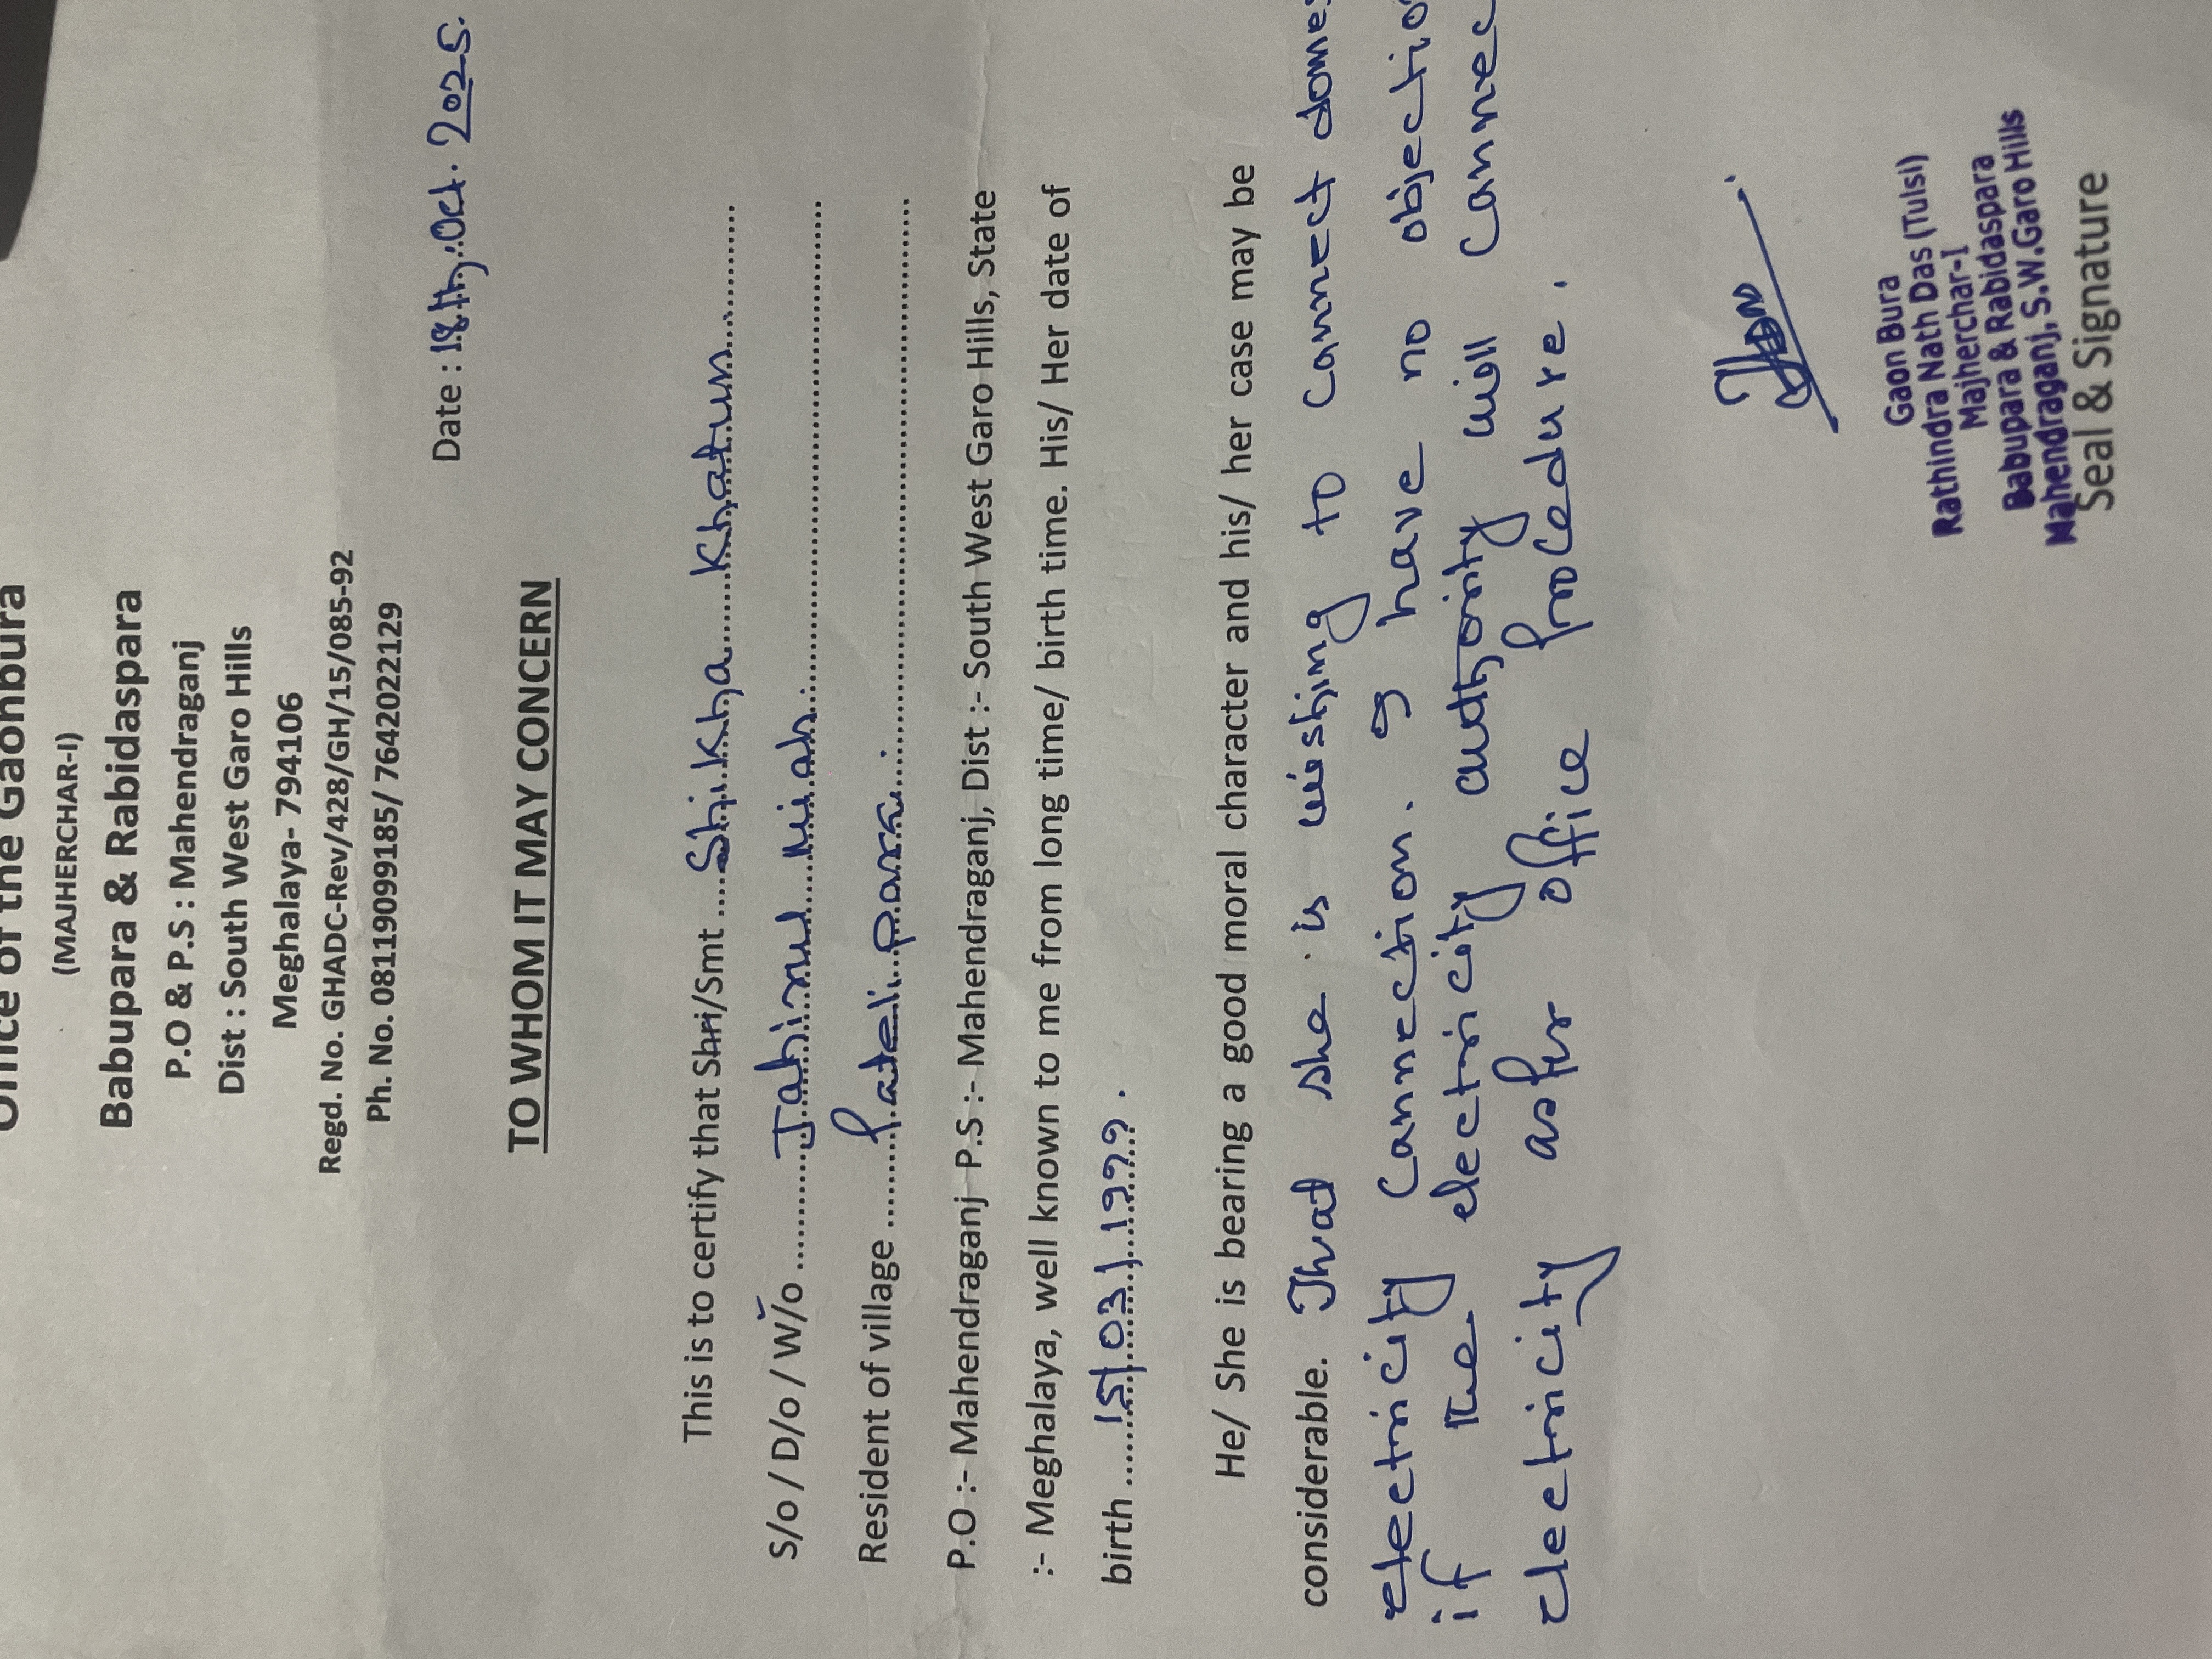 Office of the Gaonbura
(MAJHERCHAR-I)
Babupara & Rabidaspara
P.O & P.S : Mahendraganj
Dist : South West Garo Hills
Meghalaya- 794106
Regd. No. GHADC-Rev/428/GH/15/085-92
Ph. No. 08119099185/ 7642022129
Date : 18th, Oct. 2025.
TO WHOM IT MAY CONCERN
This is to certify that Shri/Smt ....Shikha......Khatun............
S/o / D/o / W/o ............Jahirul......Miah...............................
Resident of village .........Pateli para....................................
P.O :- Mahendraganj P.S :- Mahendraganj, Dist :- South West Garo Hills, State
:- Meghalaya, well known to me from long time/ birth time. His/ Her date of
birth ........15/03/1999.
He/ She is bearing a good moral character and his/ her case may be
considerable. That she is wishing to connect
electricity connection. I have no
if the electricity authority will
electricity as per office procedure.
Gaon Bura
Rathindra Nath Das (Tulsi)
Majherchar-I
Babupara & Rabidaspara
Mahendraganj, S.W.Garo Hills
Seal & Signature